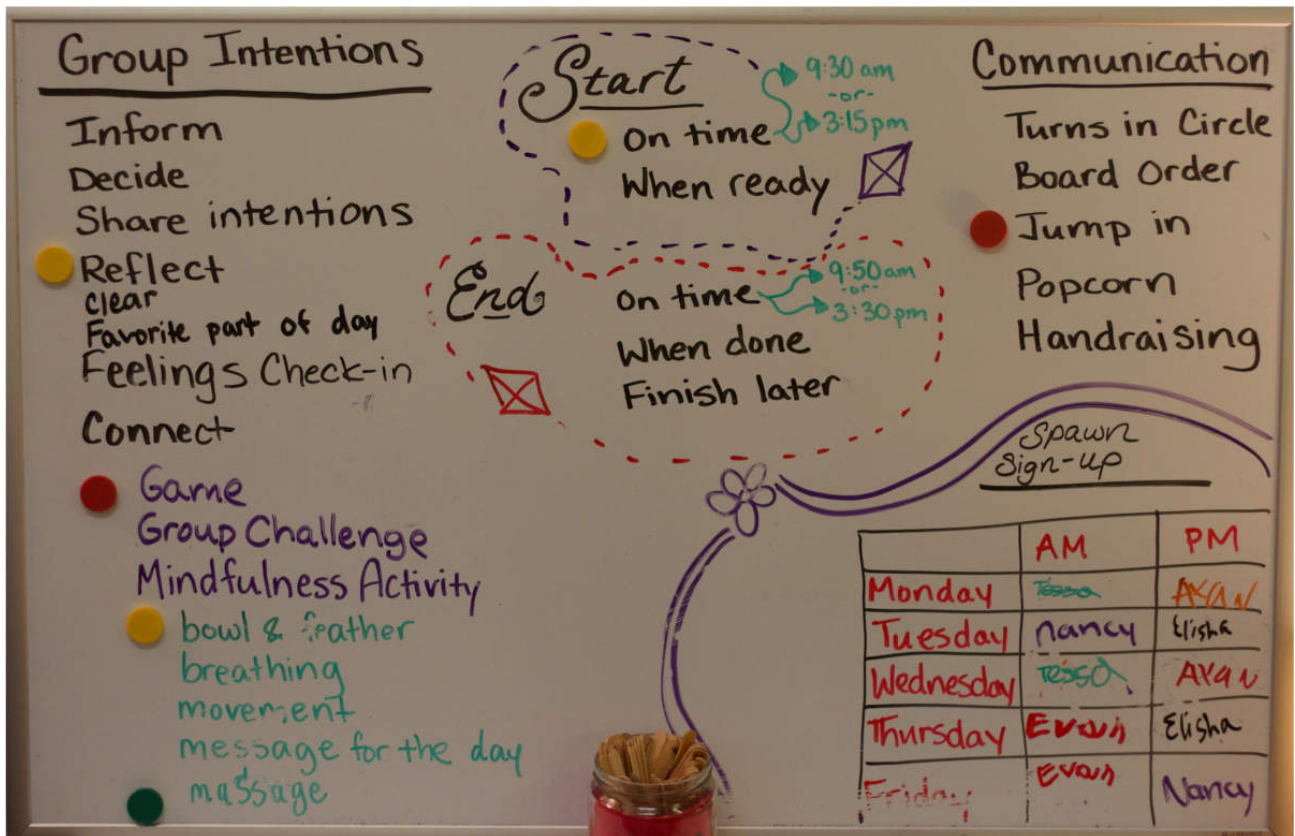 Group Intentions
Inform
Decide
Share intentions
Reflect
clear
Favorite part of day
Feelings Check-in
Connect
Game
Group Challenge
Mindfulness Activity
bowl & feather
breathing
movement
message for the day
massage
Start
On time
9:30 am
-or-
3:15pm
When ready
End
On time
9:50 am
-or-
3:30pm
When done
Finish later
Communication
Turns in Circle
Board Order
Jump in
Popcorn
Handraising
Spawn
Sign-up
AM PM
Monday Tessa AYAN
Tuesday nancy Elisha
Wednesday Tessa AYAN
Thursday Evan Elisha
Friday Evan Nancy